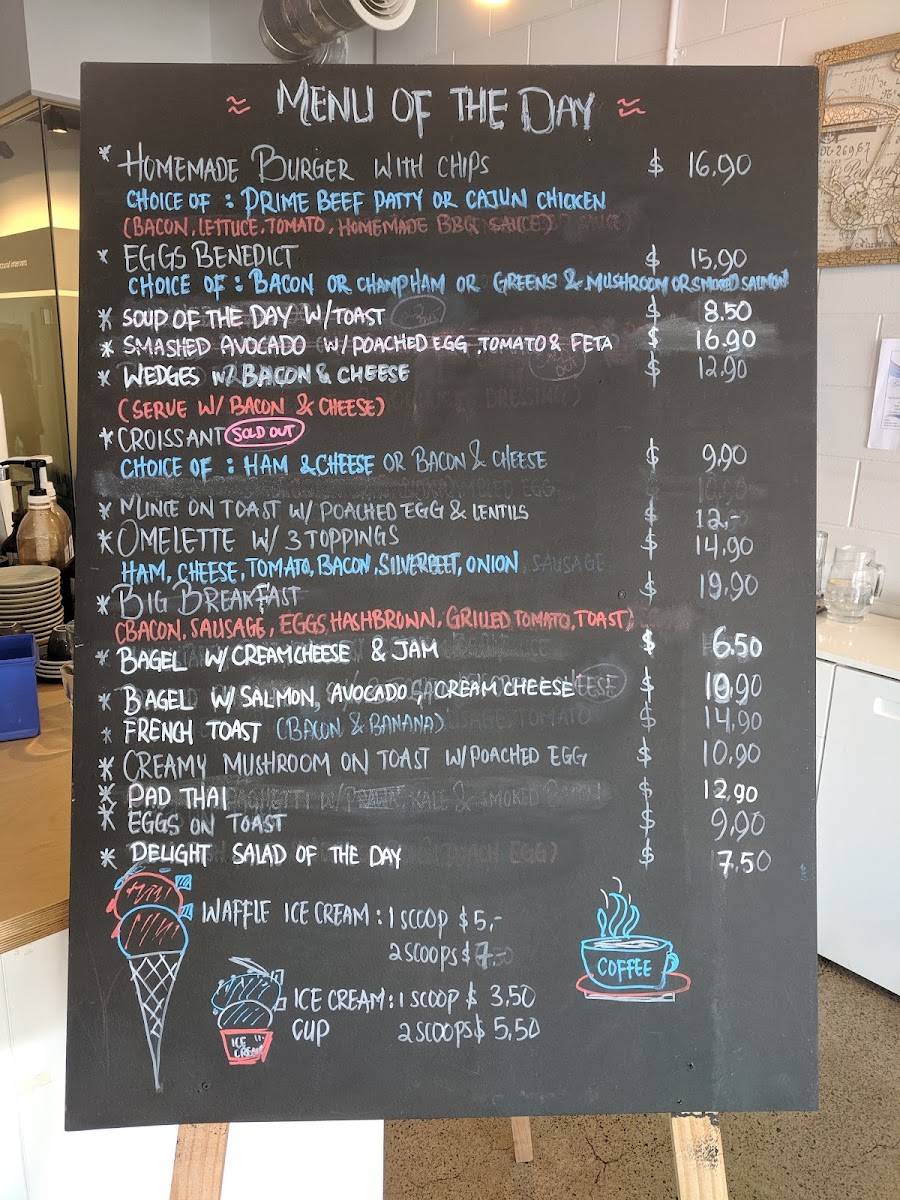 MENU OF THE DAY
* HOMEMADE BURGER WITH CHIPS $ 16.90
CHOICE OF : PRIME BEEF PATTY OR CAJUN CHICKEN
(BACON, LETTUCE, TOMATO, HOMEMADE BBQ SAUCE)
* EGGS BENEDICT $ 15.90
CHOICE OF : BACON OR CHAMPHAM OR GREENS & MUSHROOM OR SMOKED SALMON
* SOUP OF THE DAY W/TOAST $ 8.50
* SMASHED AVOCADO W/POACHED EGG, TOMATO & FETA $ 16.90
* WEDGES W/ BACON & CHEESE $ 12.90
(SERVE W/ BACON & CHEESE)
* CROISSANT SOLD OUT
CHOICE OF : HAM & CHEESE OR BACON & CHEESE $ 9.90
* MINCE ON TOAST W/ POACHED EGG & LENTILS $ 12,-
* OMELETTE W/ 3 TOPPINGS $ 14.90
HAM, CHEESE, TOMATO, BACON, SILVERBEET, ONION, SAUSAGE
* BIG BREAKFAST $ 19.90
(BACON, SAUSAGE, EGGS HASHBROWN, GRILLED TOMATO, TOAST)
* BAGEL W/CREAMCHEESE & JAM $ 6.50
* BAGEL W/ SALMON, AVOCADO, CREAM CHEESE $ 10.90
* FRENCH TOAST (BACON & BANANA) $ 14.90
* CREAMY MUSHROOM ON TOAST W/POACHED EGG $ 10.90
* PAD THAI $ 12.90
* EGGS ON TOAST $ 9.90
* DELIGHT SALAD OF THE DAY $ 7.50
WAFFLE ICE CREAM : 1 SCOOP $5,-
2 SCOOPS $7.-
ICE CREAM : 1 SCOOP $ 3.50
CUP 2 SCOOPS $ 5.50
ICE CREAM
COFFEE